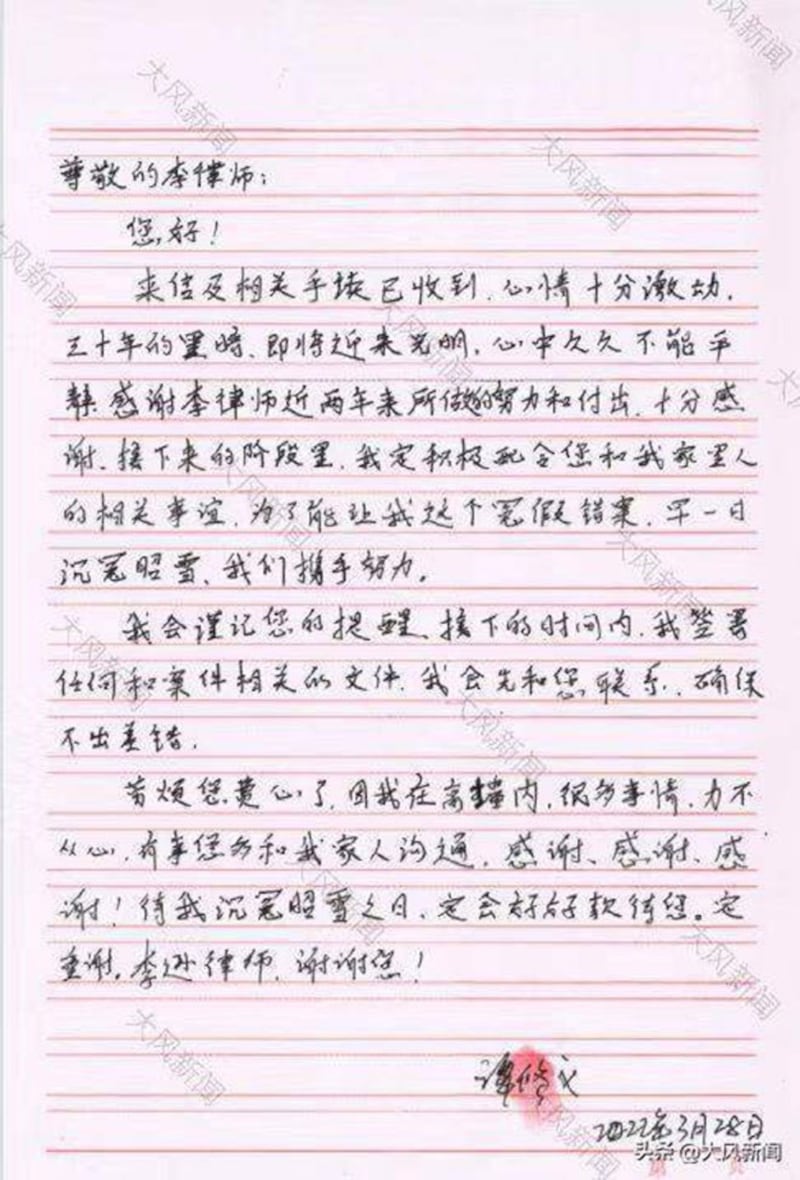 尊敬的李律师:
您好!
来信及相关手续已收到,心情十分激动,
三十年的黑暗、即将迎来光明,心中久久不能平
静。感谢李律师近两年来所做的努力和付出,十分感
谢、接下来的阶段里,我定积极配合您和我家里人
的相关事谊,为了能让我这个冤假错案,早一日
沉冤昭雪、我们携手努力。
我会谨记您的提醒、接下的时间内,我签署
任何和案件相关的文件,我会先和您联系,确保
不出差错,
劳烦您费心了,因我在高墙内,很多事情,力不
从心,有事您多和我家人沟通,感谢、感谢、感
谢!待我沉冤昭雪之日、定会好好款待您。定
重谢,李逊律师,谢谢您!
谭修义
2022年3月28日
头条@大风新闻
第 页
大风新闻